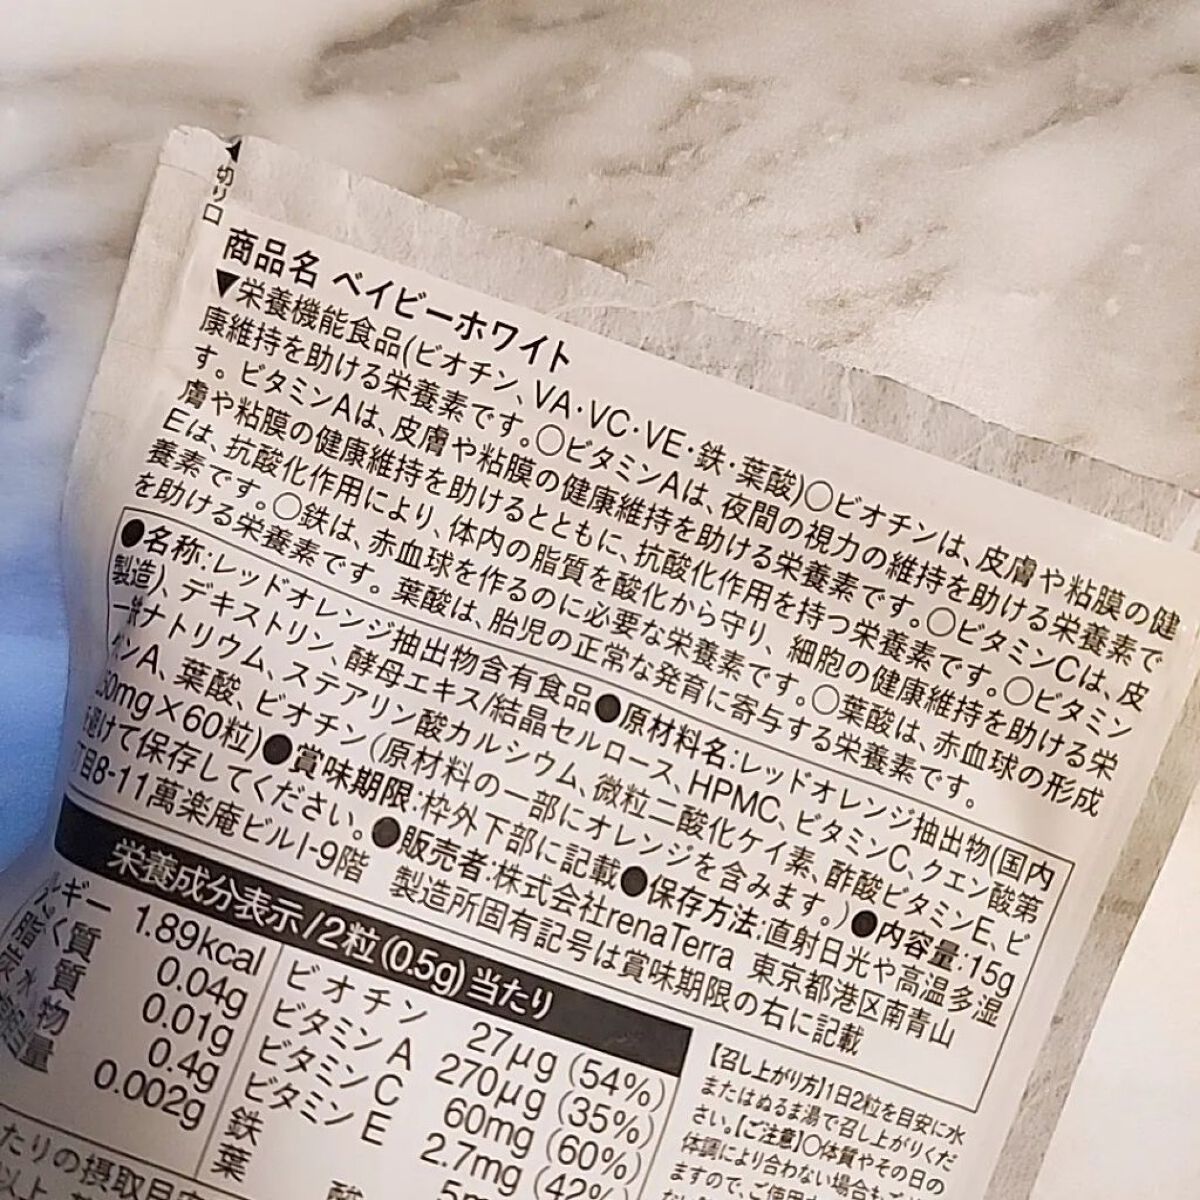 切り口
商品名 ベイビーホワイト
▼栄養機能食品(ビオチン、VA・VC・VE・鉄・葉酸)○ビオチンは、皮膚や粘膜の健
康維持を助ける栄養素です。○ビタミンAは、夜間の視力の維持を助ける栄養素で
す。ビタミンAは、皮膚や粘膜の健康維持を助ける栄養素です。○ビタミンCは、皮
膚や粘膜の健康維持を助けるとともに、抗酸化作用を持つ栄養素です。○ビタミン
Eは、抗酸化作用により、体内の脂質を酸化から守り、細胞の健康維持を助ける栄
養素です。○鉄は、赤血球を作るのに必要な栄養素です。○葉酸は、赤血球の形成
を助ける栄養素です。葉酸は、胎児の正常な発育に寄与する栄養素です。
●名称:レッドオレンジ抽出物含有食品●原材料名:レッドオレンジ抽出物(国内
製造)、デキストリン、酵母エキス/結晶セルロース、HPMC、ビタミンC、クエン酸第
一鉄ナトリウム、ステアリン酸カルシウム、微粒二酸化ケイ素、酢酸ビタミンE、ビ
ンA、葉酸、ビオチン(原材料の一部にオレンジを含みます。)●内容量:15g
50mg×60粒)●賞味期限:枠外下部に記載●保存方法:直射日光や高温多湿
避けて保存してください。●販売者:株式会社renaTerra 東京都港区南青山
丁目8-11萬楽庵ビルⅠ-9階 製造所固有記号は賞味期限の右に記載
栄養成分表示/2粒(0.5g)当たり
ルギー 1.89kcal
く質 0.04g
脂質 0.01g
炭水物 0.4g
量 0.002g
ビオチン 27μg (54%)
ビタミンA 270μg (35%)
ビタミンC 60mg (60%)
ビタミンE 2.7mg (42%)
鉄 5m
葉酸
【召し上がり方】1日2粒を目安に水
またはぬるま湯で召し上がりくだ
さい。【ご注意】○体質やその日の
体調により合わない場合もござい
ますので、ご使用
たりの摂取目安
以上